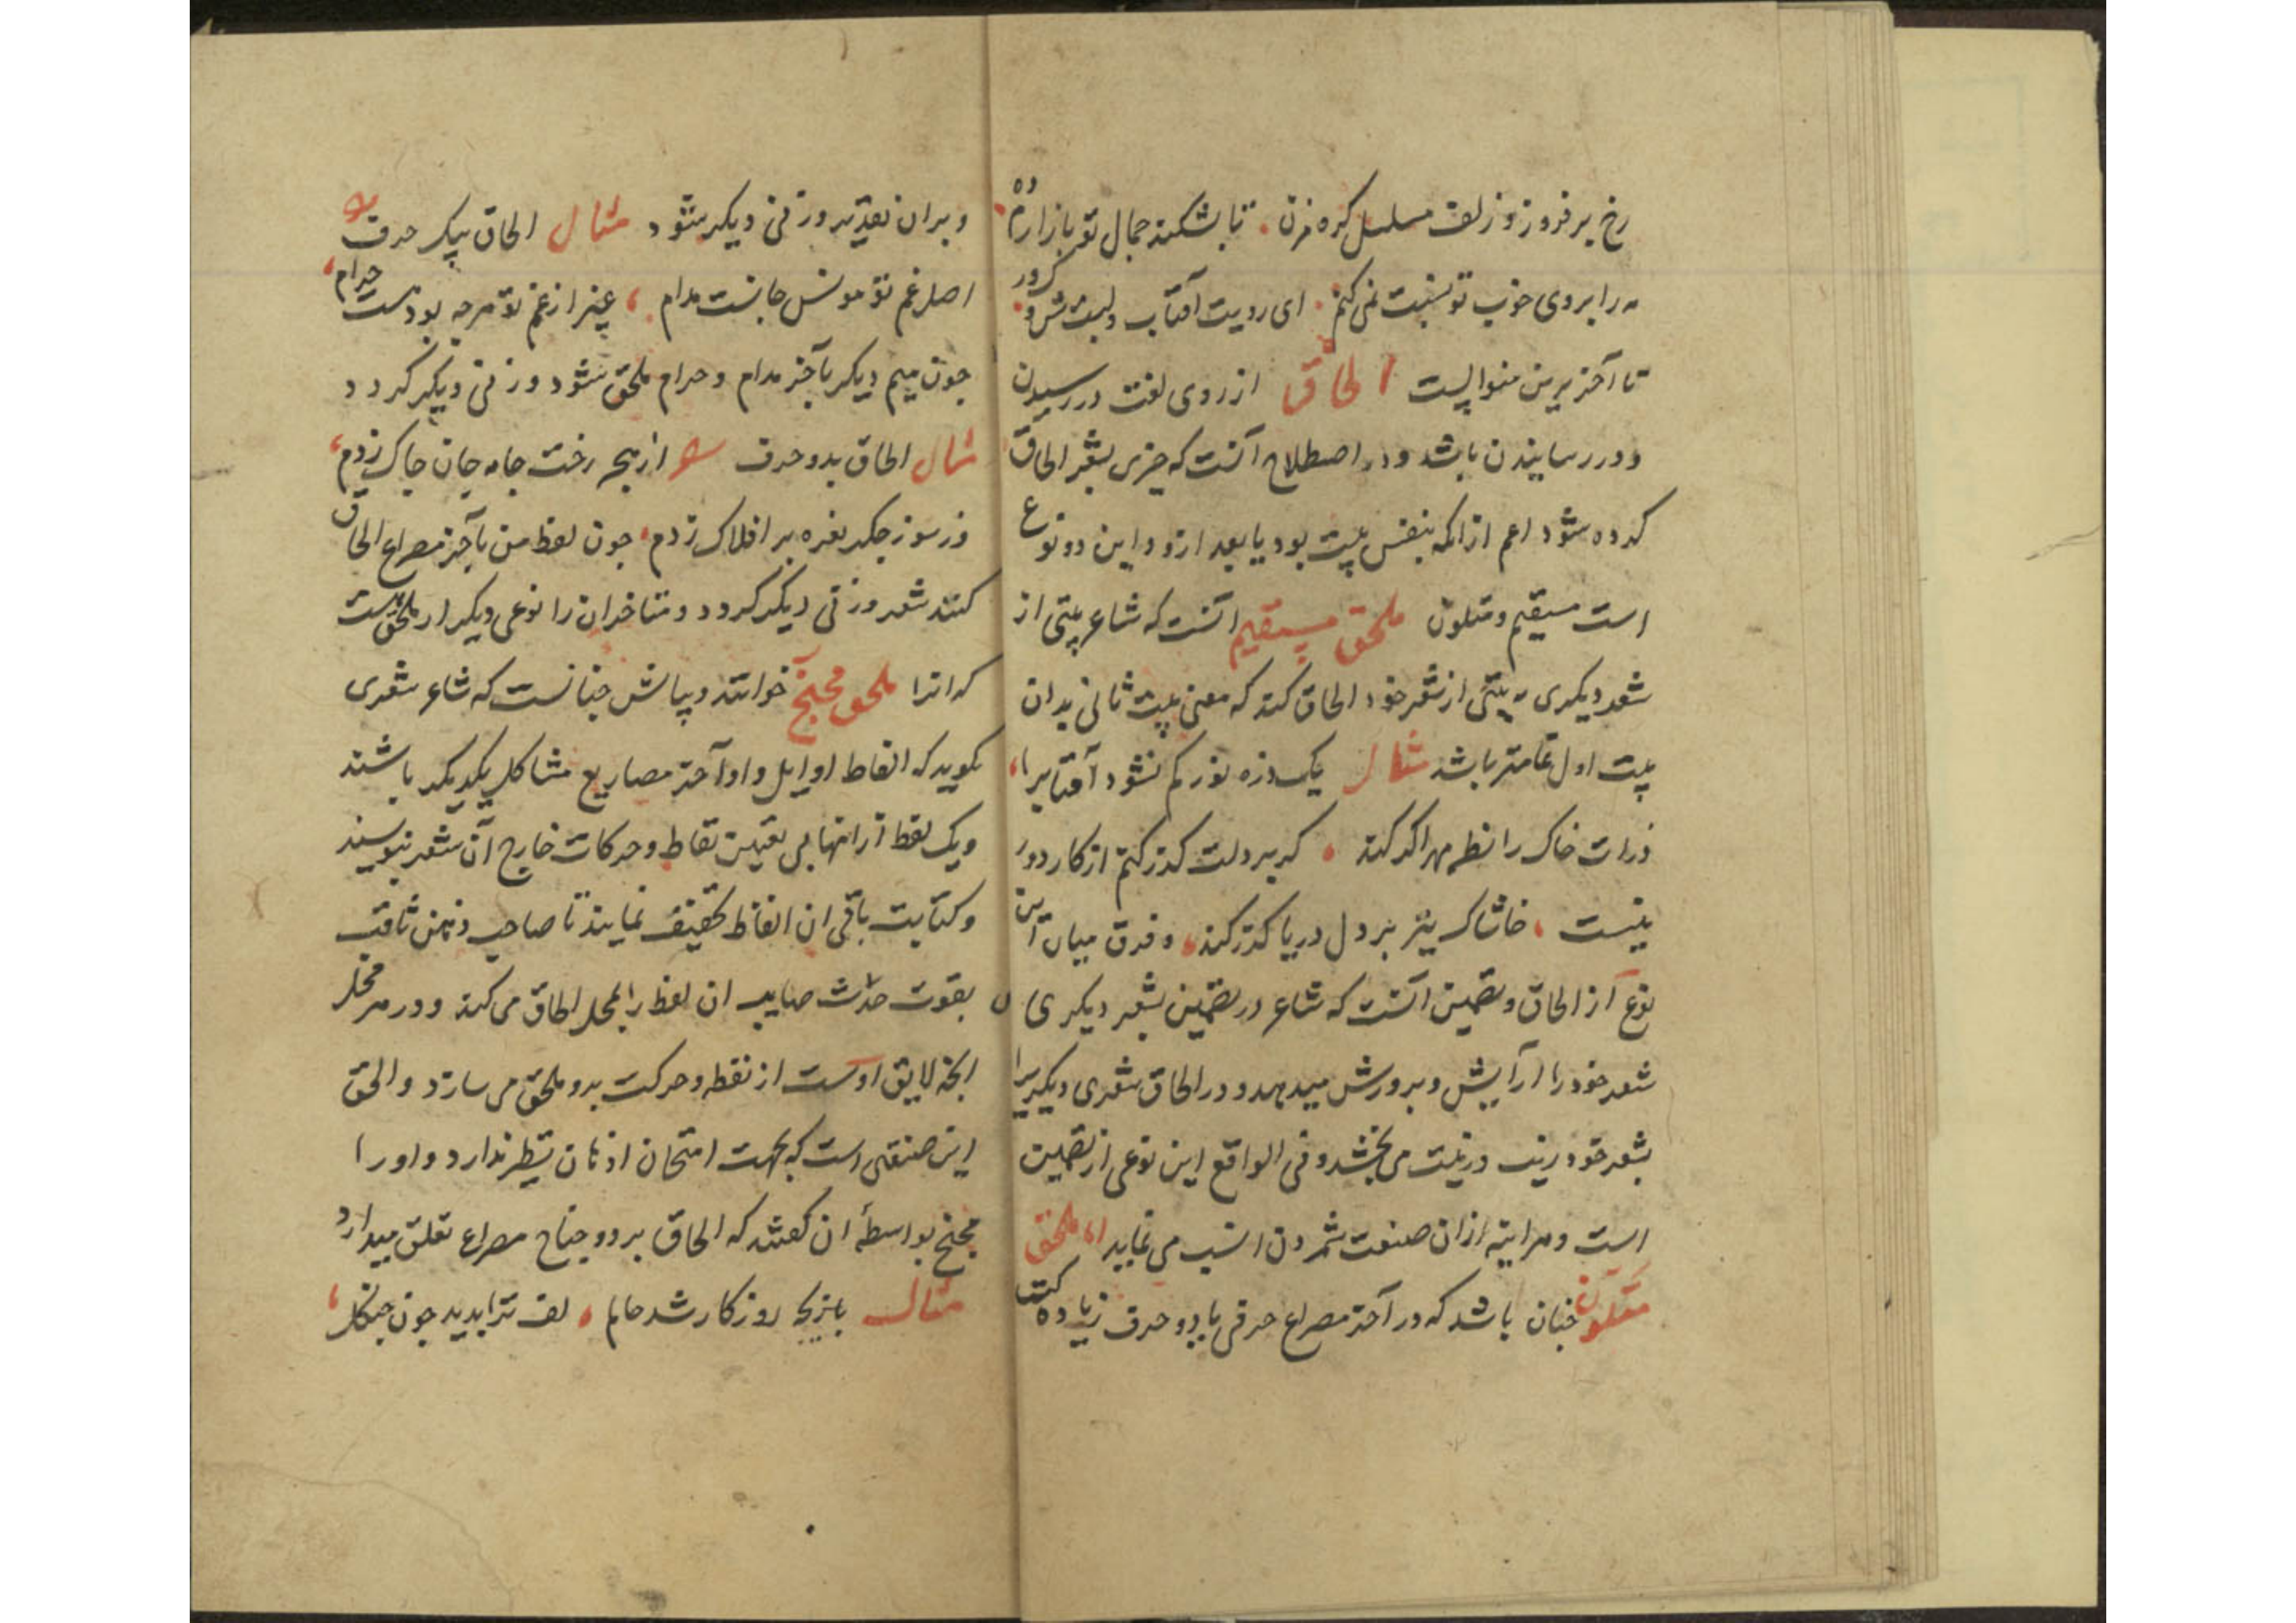 رخ برفروز و زلف مسلسل کره مزن تا بشکند جمال تو بازار
مه را بروی خوب تو نسبت نمی کنم ای رویت آفتاب ولبت
تا آخر برین منوالست الحاق از روی لغت در رسیدن
و در رسانیدن باشد و در اصطلاح آنست که چیزی بشعر الحاق
کرده شود اعم ازانکه بنفس بیت بود یا بعد ازو و این دو نوع
است مستقیم و متلون ملحق مستقیم آنست که شاعر بیتی از
شعر دیکری به بیتی از شعر خود الحاق کند که معنی بیت ثانی بدان
بیت اول تمامتر باشد مثال یک ذره نور کم نشود آفتاب را
ذرات خاک را نظر مهر اکر کند کر بر دلت کذر کنم از کار دور
نیست خاشاک نیز بر دل دریا کذر کند و فرق میان این
نوع از الحاق و تضمین آنست که شاعر در تضمین بشعر دیکری
شعر خود را آرایش و پرورش میدهد و در الحاق شعری دیکریرا
بشعر خود زیب و زینت می بخشد و فی الواقع این نوعی از تضمین
است و هر آینه ازان صنعت شمردن انسب می نماید اما ملحق
متلون چنان باشد که در آخر مصراع حرفی یا دو حرف زیاده کنند
و بران تقدیر وزنی دیکر شود مثال الحاق بیک حرف
اصل غم تو مونس جانست مدام غیر از غم تو هرچه بود هست حرام
چون میم دیکر بآخر مدام و حرام ملحق شود وزنی دیکر کردد
مثال الحاق بدو حرف از رخت جامه جان چاک زدم
وز سوز جکر نعره بر افلاک زدم چون لفظ من بآخر مصراع الحاق
کنند شعر وزنی دیکر کردد و متاخران را نوعی دیکر از ملحق هست
که انرا ملحق مجنح خوانند و بیانش چنانست که شاعر شعری
بکوید که الفاظ اوایل و اواخر مصاریع مشاکل یکدیکر باشند
و یک لفظ ازانها بی تعیین نقاط و حرکات خارج آن شعر بنویسند
و کتابت باقی ان الفاظ تخفیف نمایند تا صاحب ذهن ثاقب
بقوت حدس صایب ان لفظ را بمحل الحاق می کند و در هر محل
انچه لایق اوست از نقطه و حرکت برو ملحق می سازد و الحق
این صنعتی است که بجهت امتحان اذهان نظیر ندارد و اورا
مجنح بواسطه ان کفتند که الحاق بر دو جناح مصراع تعلق میدارد
مثال روزکار شد حالم لف ترا بدید چون